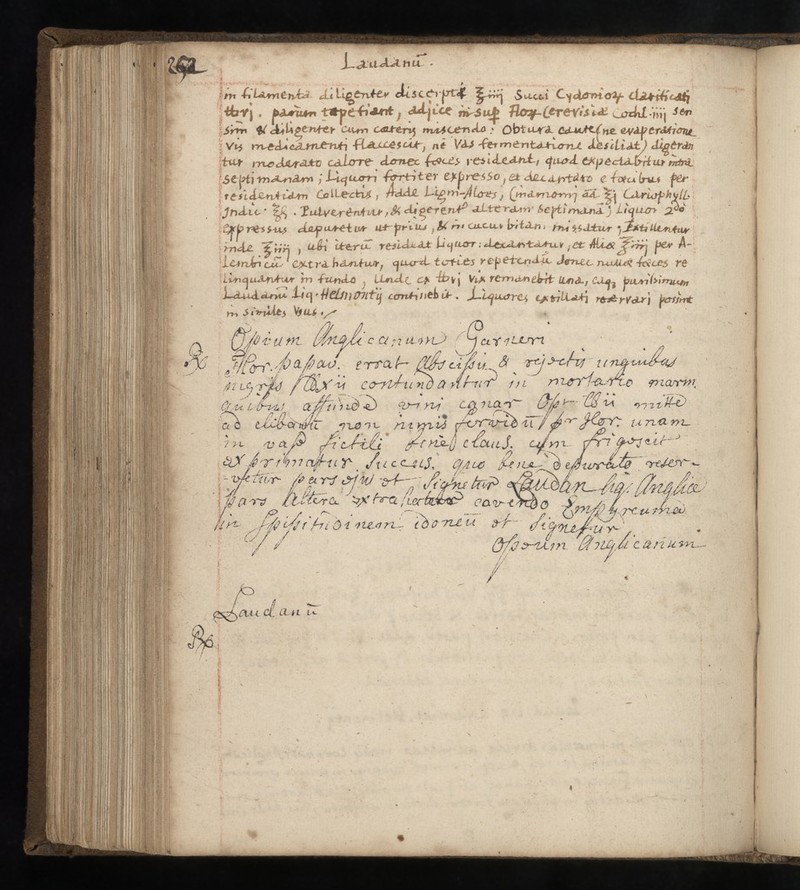 Laudanū.
in filamenta diligenter discerptæ ℥iiij Succi Cydonior clarificati
℔vj. parum tepefiant, adjice in sup Flor Cerevisiæ Cochl. iiij sen
sim & diligenter cum cæteris miscendo: Obtura caute (ne evaperatione
Vis medicamenti flaccescat, ne Vas fermentatione desiliat) digeran
tur moderato calore donec fœces resideant, quod expectabitur intra
Septimanam; Liquori fortiter expresso, et decantato e fœcibus per
residentiam Collectis, Adde Lign-Aloes, Cinamomi āā ℥j Cariophyll
Indic: ℥ß. Pulverentur, & digerent alteram Septimana; Liquor 2do
expressus depuretur ut prius, & in cucurbitam missatur; Extillentur
inde ℥iiij, ubi iterū resideat Liquor: decantatur, et Aliæ ℥iiij per A-
lembicū extrahantur, quod toties repetendū donec nullæ fœces re
linquantur in fundo, Unde ex ℔vj vix remanebit una, eaq3 purissimum
Laudanū Liq. Helmontij continebit. Liquores extillati reservari possint
in similes Usus.
Opium Anglicanum Garneri
℞ Flor. papav. errat Abscissis & rejectis unguibus
nigris ℔xii contundantur in mortario marm.
quibus affunde vini canar Opt ℔ii mitte
ad clibanū non nimis fervidū pr Hor. unam
in vase fictili bene claus. cum frigescit
exprimatur Succus. quo bene depurato reser-
-vetur pars ejus et Signetur Laudan liq. Angliæ
pars Altera extrahatur cavendo Empyreuma
in Spissitudinem idoneū et Signetur
Opium Anglicanum
Laudanū
℞